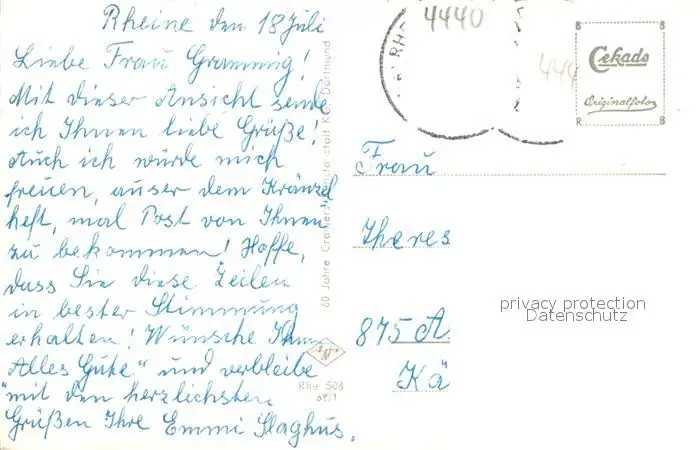 Rheine den 18 Juli
Liebe Frau Grammig!
Mit dieser Ansicht sende
ich Ihnen liebe Grüße!
Auch ich würde mich
freuen, ausser dem Kränzel
heft, mal Post von Ihnen
zu bekommen! Hoffe,
dass Sie diese Zeilen
in bester Stimmung
erhalten! Wünsche Ihnen
Alles Gute" und verbleibe
"mit den herzlichsten
Grüßen Ihre Emmi Slaghus.
60 Jahre Cramers Dortmund
Rhe 508
69/1
4440
RHE
444
Cekade
Originalfoto
Frau
Theres
875 A.
Kä
privacy protection
Datenschutz